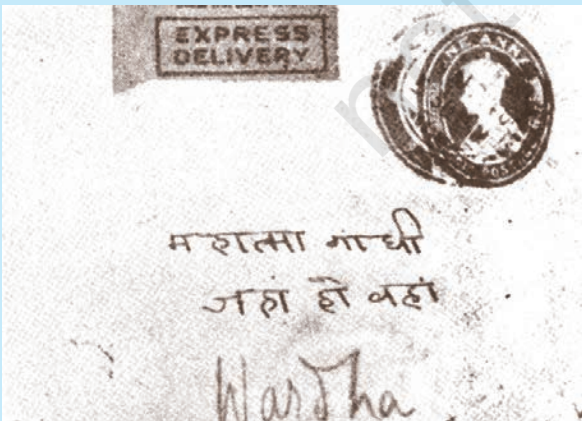 EXPRESS
DELIVERY
ANNA
महात्मा गांधी
जहां हो वहां
Wardha